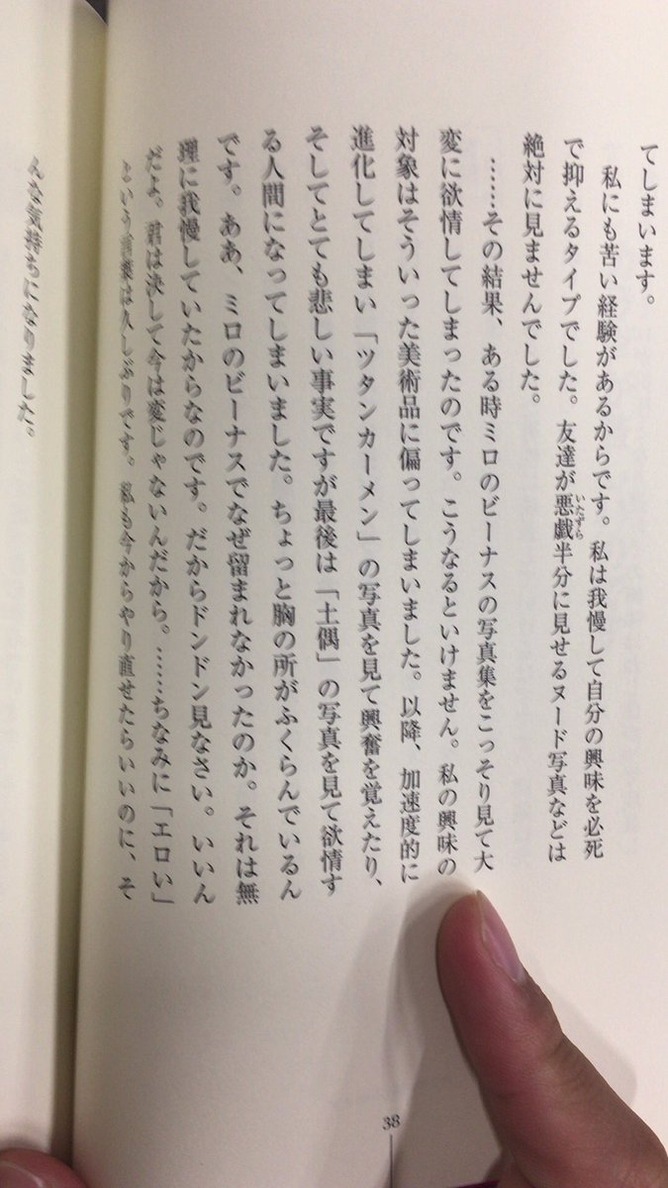 てしまいます。
私にも苦い経験があるからです。私は我慢して自分の興味を必死
で抑えるタイプでした。友達が悪戯半分に見せるヌード写真などは
いたずら
絶対に見ませんでした。
……その結果、ある時ミロのビーナスの写真集をこっそり見て大
変に欲情してしまったのです。こうなるといけません。私の興味の
対象はそういった美術品に偏ってしまいました。以降、加速度的に
進化してしまい「ツタンカーメン」の写真を見て興奮を覚えたり、
そしてとても悲しい事実ですが最後は「土偶」の写真を見て欲情す
る人間になってしまいました。ちょっと胸の所がふくらんでいるん
です。ああ、ミロのビーナスでなぜ留まれなかったのか。それは無
理に我慢していたからなのです。だからドンドン見なさい。いいん
だよ。君は決して今は変じゃないんだから。……ちなみに「エロい」
という言葉は久しぶりです。私も今からやり直せたらいいのに、そ
んな気持ちになりました。
38